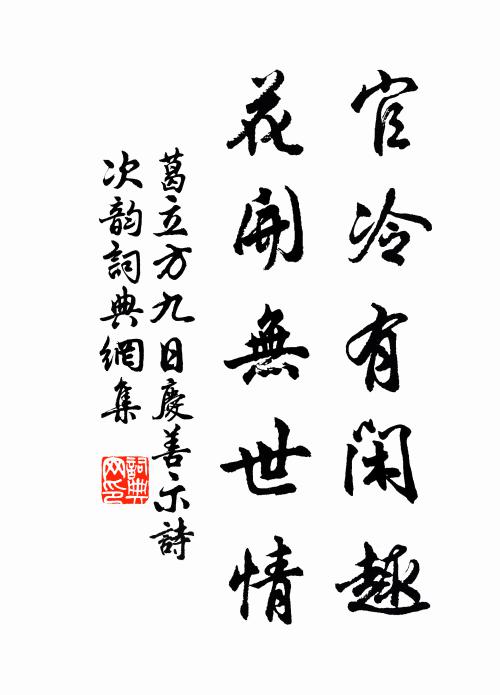 官冷有閑趣
花開無世情
葛立方九日慶善示詩
次韵詞典網集
詞典网印